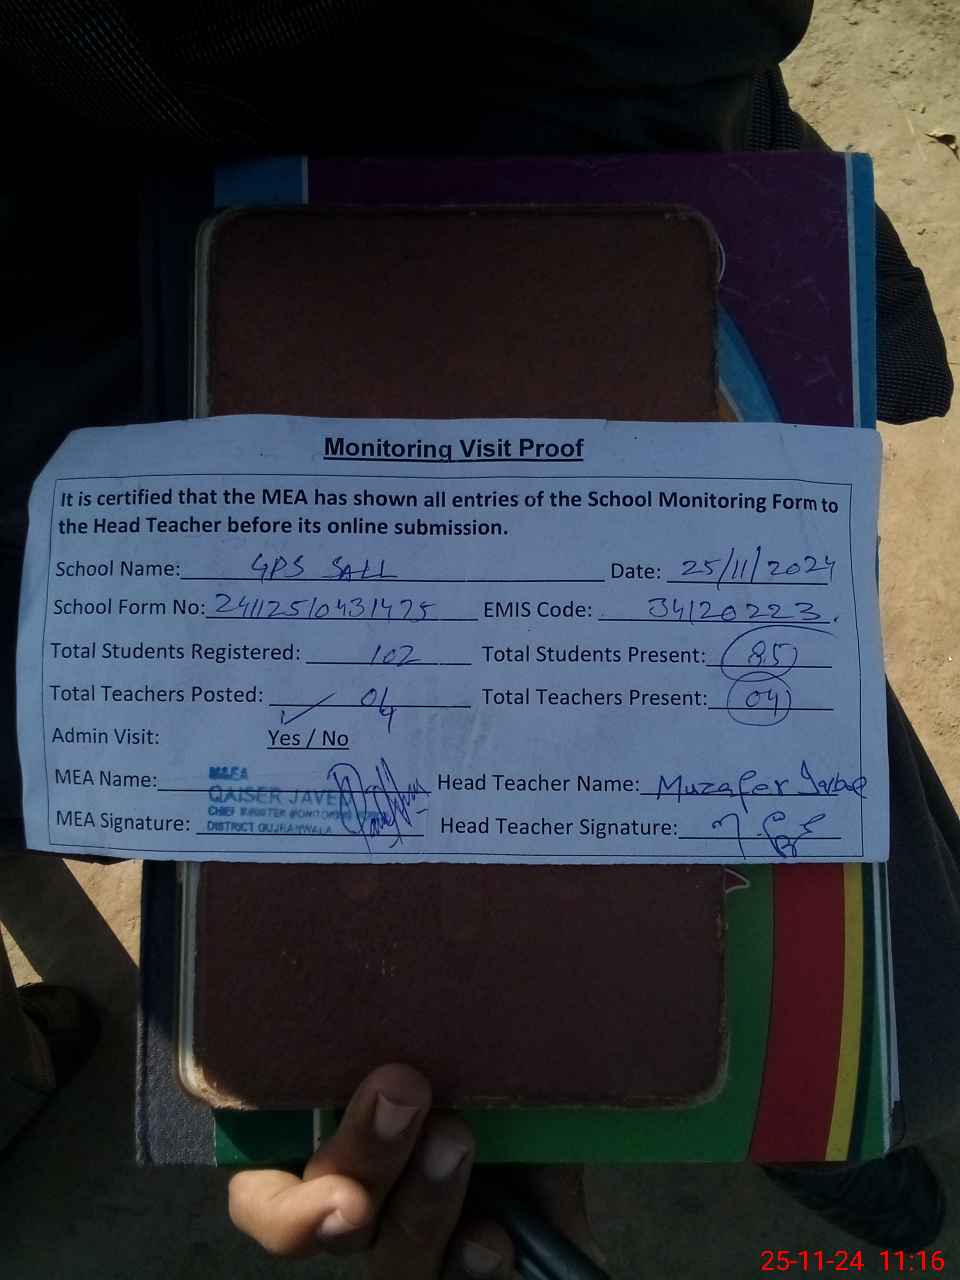 Monitoring Visit Proof
It is certified that the MEA has shown all entries of the School Monitoring Form to
the Head Teacher before its online submission.
School Name: GPS SALL Date: 25/11/2024
School Form No: 241125/0431475 EMIS Code: 34120223.
Total Students Registered: 102 Total Students Present: 85
Total Teachers Posted: 04 Total Teachers Present: 04
Admin Visit: Yes / No
MEA Name: M&EA Head Teacher Name: Muzafer Iqbal
QAISER JAVED
CHIEF MINISTER MONITORING
MEA Signature: DISTRICT GUJRANWALA Head Teacher Signature:
25-11-24 11:16